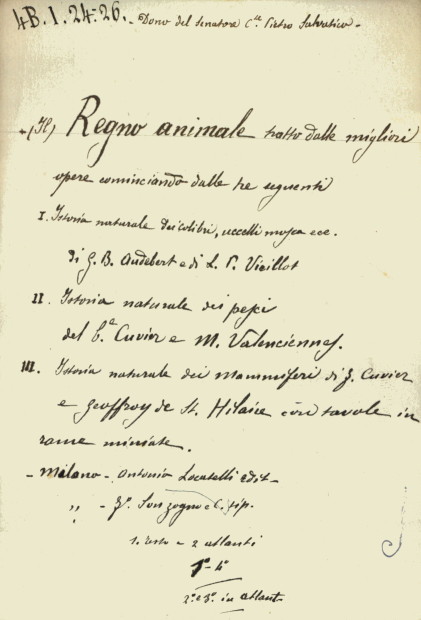 4B. I. 24-26. - Dono del Senatore C.te Pietro Salvatico -
- (Il) Regno animale tratto dalle migliori
opere cominciando dalle tre seguenti
I. Istoria naturale dei colibri, uccelli mosca ecc.
di G. B. Audebert e di L. P. Vieillot
II. Istoria naturale dei pesci
del b.e Cuvier e M. Valenciennes.
III. Istoria naturale dei mammiferi di F. Cuvier
e Geoffroy de St. Hilaire con tavole in
rame miniate.
- Milano - Antonio Locatelli edit -
" - Sonzogno e C. tip.
1. testo e 2 atlanti
1° - 4°
2° e 3° in atlant -